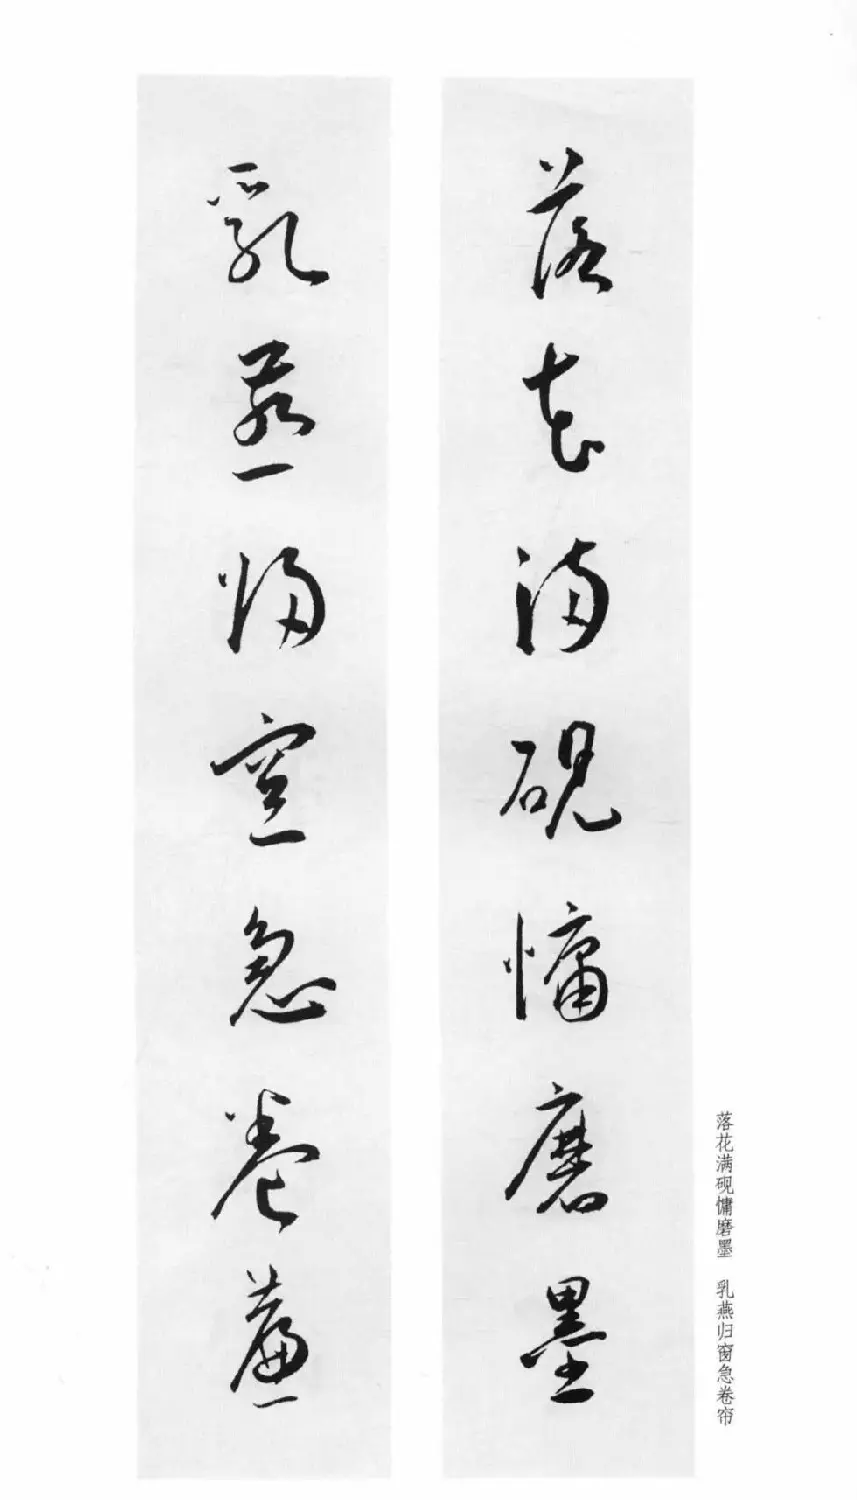 落花满砚慵磨墨
乳燕归窗急卷帘
落花满砚慵磨墨 乳燕归窗急卷帘